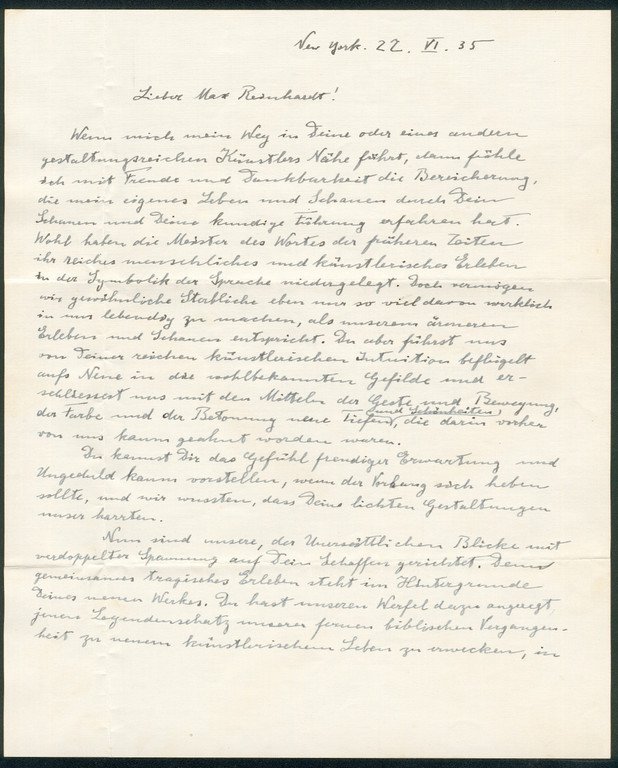 New York. 22. VI. 35
Lieber Max Reinhardt!
Wenn mich mein Weg in Deine oder eines andern
gestaltungsreichen Künstlers Nähe führt, dann fühle
ich mit Freude und Dankbarkeit die Bereicherung,
die mein eigenes Leben und Schauen durch Dein
Schauen und Deine kundige Führung erfahren hat.
Wohl haben die Meister des Wortes der früheren Zeiten
ihr reiches menschliches und künstlerisches Erleben
in der Symbolik der Sprache niedergelegt. Doch vermögen
wir gewöhnliche Sterbliche eben nur so viel davon wirklich
in uns lebendig zu machen, als unserem ärmeren
Erleben und Schauen entspricht. Du aber führst uns
von Deiner reichen künstlerischen Intuition beflügelt
aufs Neue in die wohlbekannten Gefilde und er-
schliessest uns mit den Mitteln der Geste und Bewegung,
der Farbe und der Betonung neue Tiefen und Schönheiten, die darin vorher
von uns kaum geahnt worden waren.
Du kannst Dir das Gefühl freudiger Erwartung und
Ungeduld kaum vorstellen, wenn der Vorhang sich heben
sollte, und wir wussten, dass Deine lichten Gestaltungen
unser harrten.
Nun sind unsere, der Unersättlichen Blicke mit
verdoppelter Spannung auf Dein Schaffen gerichtet. Denn
gemeinsames tragisches Erleben steht im Hintergrunde
Deines neuen Werkes. Du hast unseren Werfel dazu angeregt,
jenen Legendenschatz unserer fernen biblischen Vergangen-
heit zu neuem künstlerischem Leben zu erwecken, in